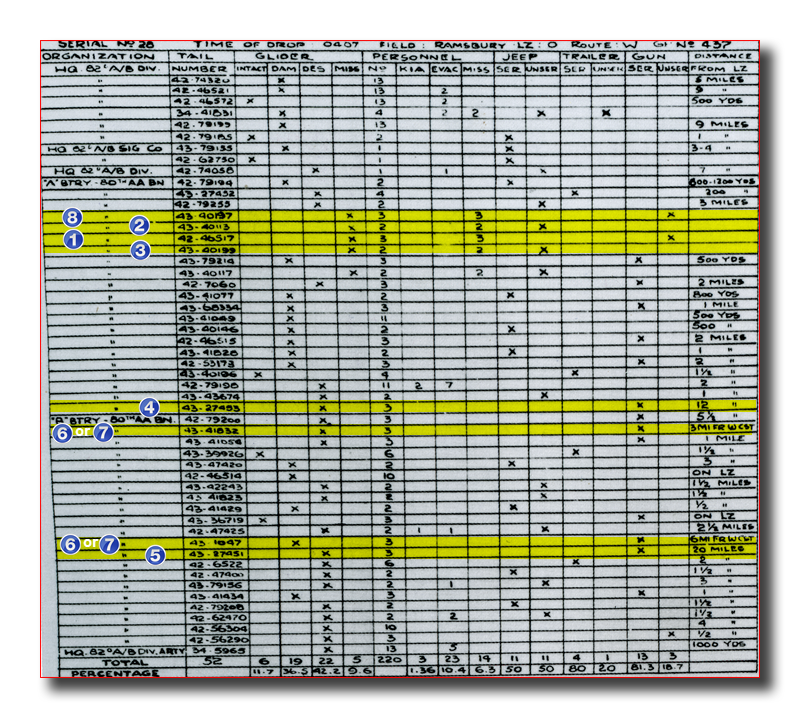 SERIAL Nº 28 TIME OF DROP : 0407 FIELD : RAMSBURY LZ : O ROUTE : W GP Nº 437
ORGANIZATION TAIL GLIDER PERSONNEL JEEP TRAILER GUN DISTANCE
HQ. 82ᴺ A/B DIV. NUMBER INTACT DAM DES MISS Nº KIA EVAC MISS SER UNSER SER UNSER SER UNSER FROM LZ
" 42-74320 x 13 5 MILES
" 42-46521 x 13 2 9 "
" 42-46572 x 13 2 500 YDS
" 34-41831 x 4 2 2 x x
" 42-79193 x 13 9 MILES
" 42-79185 x 2 x 1 "
HQ 82ᴺ A/B SIG CO 43-79155 x 1 x 3-4 "
" 42-62750 x 1 x
HQ 82ᴺ A/B DIV. 42-74058 x 1 1 x 7 "
"A" BTRY - 80ᵀᴴ AA BN 42-79194 x 2 x 800-1200 YDS
" 43-27452 x 4 x 200 "
" 42-79255 x 2 x 3 MILES
8 " 43-40197 x 3 3 x
2 " 43-40113 x 2 2 x
1 " 42-46517 x 3 3 x
3 " 43-40199 x 2 2 x
" 43-79214 x 3 x 500 YDS
" 43-40117 x 2 2 x
" 42-7060 x 3 x 2 MILES
" 43-41077 x 2 x 800 YDS
" 43-68334 x 3 x 1 MILE
" 43-41049 x 11 500 YDS
" 43-40146 x 2 x 500 "
" 42-46515 x 3 x 2 MILES
" 43-41828 x 2 x 1 "
" 42-53173 x 3 x 2 "
" 43-40196 x 4 x 1½ "
" 42-79198 x 11 2 7 2 "
" 43-43674 x 2 x 1 "
4 " 43-27453 x 3 x 12 "
"B" BTRY - 80ᵀᴴ AA BN. 42-79200 x 3 x 5½ "
6 or 7 " 43-41832 x 3 x 3MI FR W CST
" 43-41054 x 3 x 1 MILE
" 43-39926 x 6 x 1½ "
" 43-47420 x 2 x 3 "
" 42-46514 x 10 ON LZ
" 43-42243 x 2 x 1½ MILES
" 43-41823 x 2 x 1½ "
" 43-41429 x 2 x ½ "
" 43-36719 x 3 x ON LZ
" 42-47425 x 2 1 1 x 2½ MILES
6 or 7 " 43-1847 x 3 x 6MI FR W CST
5 " 43-27451 x 3 x 20 MILES
" 42-6522 x 6 x 2 "
" 42-47400 x 2 x 1½ "
" 43-79156 x 2 1 x 3 "
" 43-41434 x 3 x 1 "
" 42-79208 x 2 x 1½ "
" 42-62470 x 2 2 x 1½ "
" 42-56304 x 10 4 "
" 42-56290 x 3 x ½ "
HQ. 82ᴰ A/B DIV. ARTY 34-5965 x 13 5 1000 YDS
TOTAL 52 6 19 22 5 220 3 23 14 11 11 4 1 13 3
PERCENTAGE 11.7 36.5 42.2 9.6 1.36 10.4 6.3 50 50 80 20 81.3 18.7